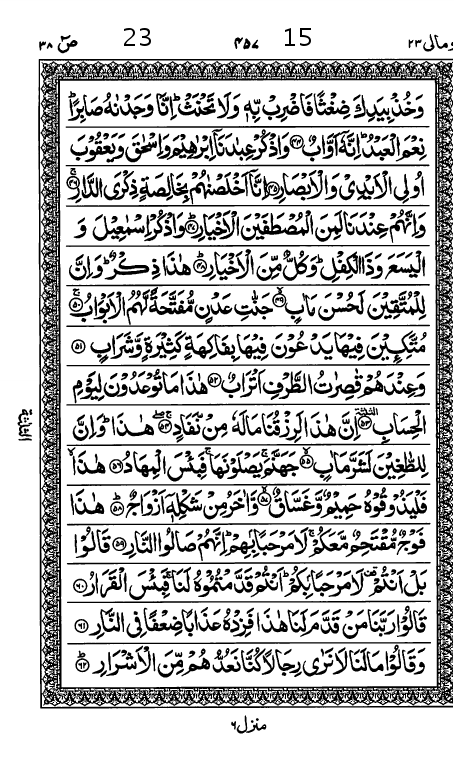 ومالی ۲۳ 15 ۴۵۷ 23 صٓ ۳۸
وَخُذْ بِیَدِكَ ضِغْثًا فَاضْرِبْ بِّهٖ وَلَا تَحْنَثْ ؕ اِنَّا وَجَدْنٰهُ صَابِرًا ؕ
نِعْمَ الْعَبْدُ ؕ اِنَّهٗۤ اَوَّابٌ ﴿۴۴﴾ وَاذْكُرْ عِبٰدَنَاۤ اِبْرٰهِیْمَ وَاِسْحٰقَ وَیَعْقُوْبَ
اُولِی الْاَیْدِیْ وَالْاَبْصَارِ ﴿۴۵﴾ اِنَّاۤ اَخْلَصْنٰهُمْ بِخَالِصَةٍ ذِكْرَی الدَّارِ ﴿۴۶﴾
وَاِنَّهُمْ عِنْدَنَا لَمِنَ الْمُصْطَفَیْنَ الْاَخْیَارِ ﴿۴۷﴾ وَاذْكُرْ اِسْمٰعِیْلَ وَ
الْیَسَعَ وَذَا الْكِفْلِ ؕ وَكُلٌّ مِّنَ الْاَخْیَارِ ﴿۴۸﴾ هٰذَا ذِكْرٌ ؕ وَاِنَّ
لِلْمُتَّقِیْنَ لَحُسْنَ مَاٰبٍ ﴿۴۹﴾ جَنّٰتِ عَدْنٍ مُّفَتَّحَةً لَّهُمُ الْاَبْوَابُ ﴿۵۰﴾
مُتَّكِـِٕیْنَ فِیْهَا یَدْعُوْنَ فِیْهَا بِفَاكِهَةٍ كَثِیْرَةٍ وَّشَرَابٍ ﴿۵۱﴾
وَعِنْدَهُمْ قٰصِرٰتُ الطَّرْفِ اَتْرَابٌ ﴿۵۲﴾ هٰذَا مَا تُوْعَدُوْنَ لِیَوْمِ
الْحِسَابِ ﴿۵۳﴾ اِنَّ هٰذَا لَرِزْقُنَا مَا لَهٗ مِنْ نَّفَادٍ ﴿۵۴﴾ هٰذَا ؕ وَاِنَّ
لِلطّٰغِیْنَ لَشَرَّ مَاٰبٍ ﴿۵۵﴾ جَهَنَّمَ ۚ یَصْلَوْنَهَا ۚ فَبِئْسَ الْمِهَادُ ﴿۵۶﴾ هٰذَا ۙ
فَلْیَذُوْقُوْهُ حَمِیْمٌ وَّغَسَّاقٌ ﴿۵۷﴾ وَّاٰخَرُ مِنْ شَكْلِهٖۤ اَزْوَاجٌ ﴿۵۸﴾ هٰذَا
فَوْجٌ مُّقْتَحِمٌ مَّعَكُمْ ۚ لَا مَرْحَبًۢا بِهِمْ ؕ اِنَّهُمْ صَالُوا النَّارِ ﴿۵۹﴾ قَالُوْا
بَلْ اَنْتُمْ ۫ لَا مَرْحَبًۢا بِكُمْ ؕ اَنْتُمْ قَدَّمْتُمُوْهُ لَنَا ۚ فَبِئْسَ الْقَرَارُ ﴿۶۰﴾
قَالُوْا رَبَّنَا مَنْ قَدَّمَ لَنَا هٰذَا فَزِدْهُ عَذَابًا ضِعْفًا فِی النَّارِ ﴿۶۱﴾
وَقَالُوْا مَا لَنَا لَا نَرٰی رِجَالًا كُنَّا نَعُدُّهُمْ مِّنَ الْاَشْرَارِ ﴿۶۲﴾
منزل ۶